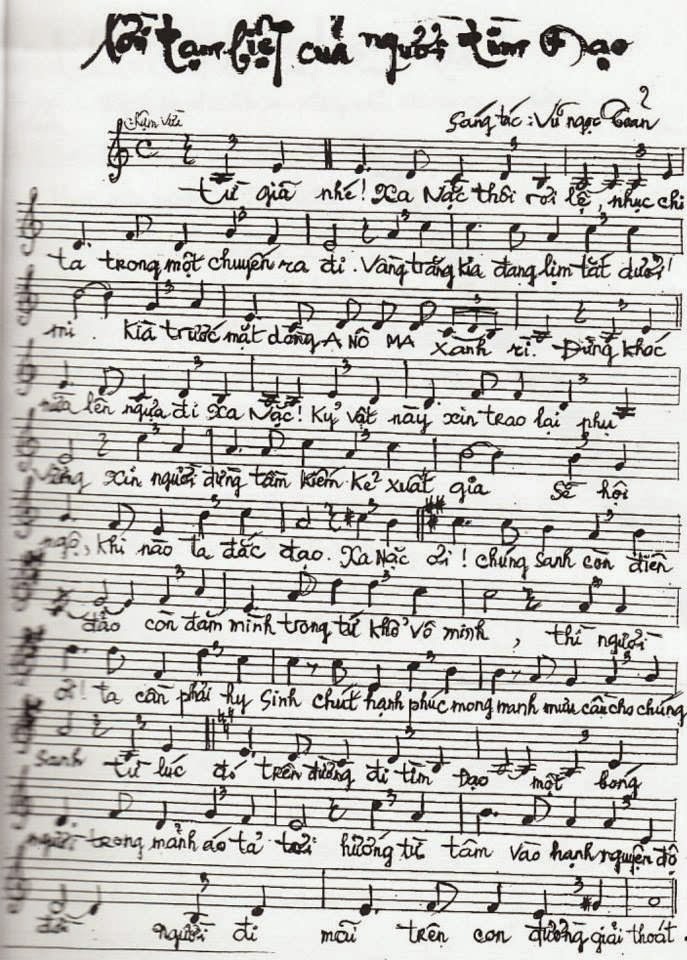 lời tạm biệt của người tìm Đạo
Chậm vừa
Sáng tác : Vũ ngọc Toản
Từ giã nhé! Xa Nặc thôi rơi lệ, nhục chi
ta trong một chuyến ra đi. Vầng trăng kia đang lịm tắt dưới
mi. Kìa trước mặt dòng A NÔ MA xanh rì. Đừng khóc
nữa lên ngựa đi Xa Nặc! Kỷ vật này xin trao lại phụ
vương xin người đừng tầm kiếm kẻ xuất gia Sẽ hội
ngộ, khi nào ta đắc đạo. Xa Nặc ơi! chúng sanh còn điên
đảo còn đắm mình trong tứ khổ vô minh, thì người
ơi! ta cần phải hy sinh chút hạnh phúc mong manh mưu cầu cho chúng
sanh từ lúc đó trên đường đi tìm Đạo một bóng
người trong mảnh áo tả tơi hướng từ tâm vào hạnh nguyện độ
đời người đi mãi trên con đường giải thoát.